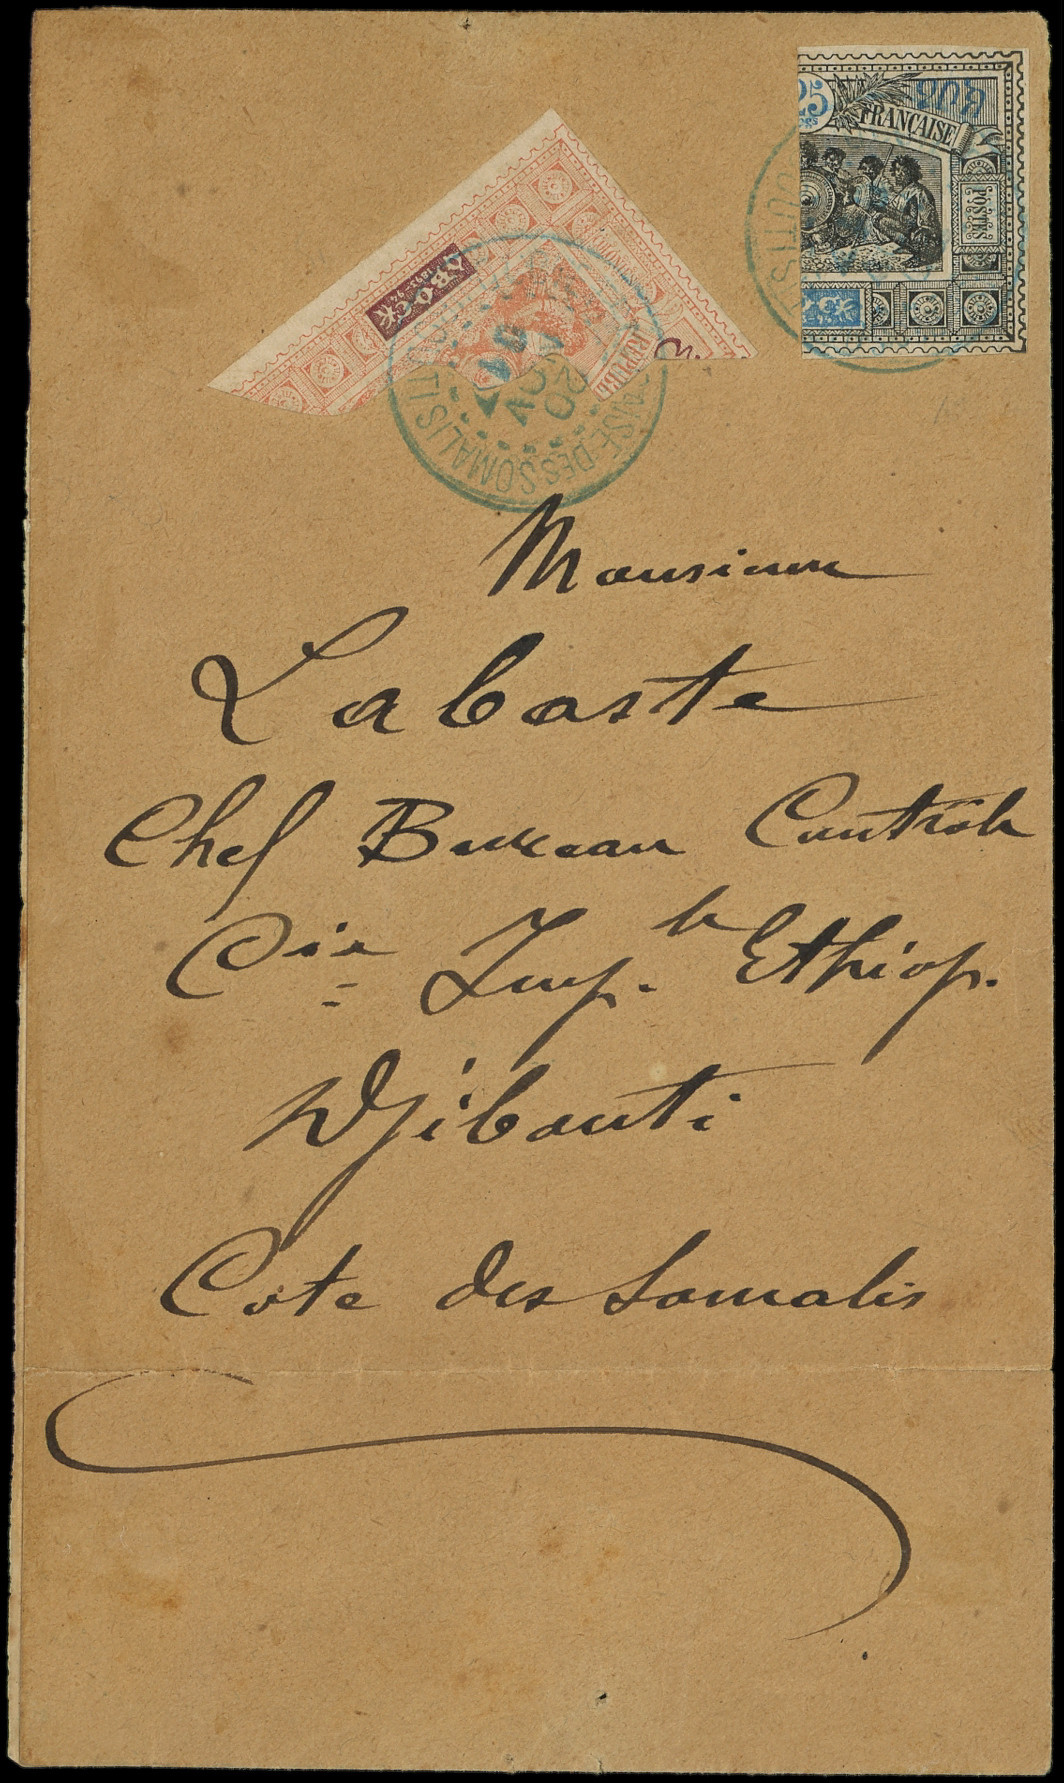 25
FRANÇAISE
POSTES
1893-94
DES SOMALIS
AOU
02
Monsieur
Labaste
Chef Bureau Contrôle
Cie Imp.le Ethiop.
Djibouti
Cote des Somalis